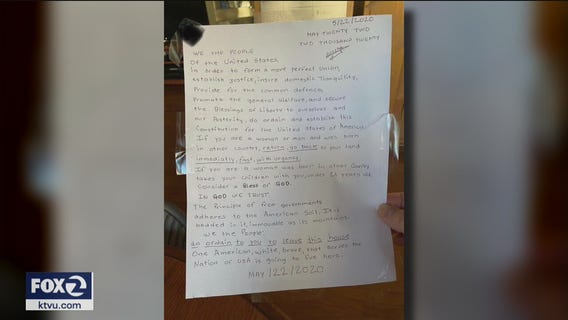 5/22/2020
MAY TWENTY TWO
TWO THOUSAND TWENTY
WE THE PEOPLE
Of the United States
In order to form a more perfect Union,
establish justice, insure domestic Tranquility,
Provide for the common defence,
Promote the general Welfare, and secure
the Blessings of Liberty to ourselves and
our Posterity, do ordain and establish this
Constitution for the United States of America
If you are a woman or man and was born
in other country, return, go back to your land
immediatly, fast, with urgency.
If you are a woman was born in other Country
takes your children with you, under 21 years old
Consider a Bless of GOD.
IN GOD WE TRUST
The Principle of free governments
adheres to the American Soil. It is
bedded in it, immovable as its mountains.
We the People:
do ordain to you to leave this house
One American, white, brave, that served the
Nation or USA is going to live here.
MAY /22/2020
FOX 2
ktvu.com